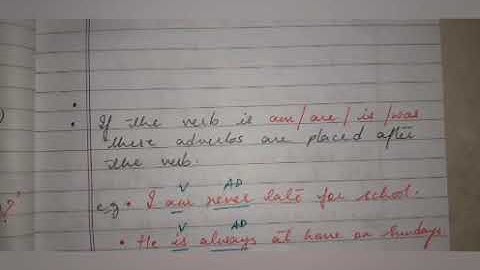 If the verb is am/are/is/was
these adverbs are placed after
the verb.
V AD
e.g • I am never late for school.
V AD
• He is always at home on Sundays